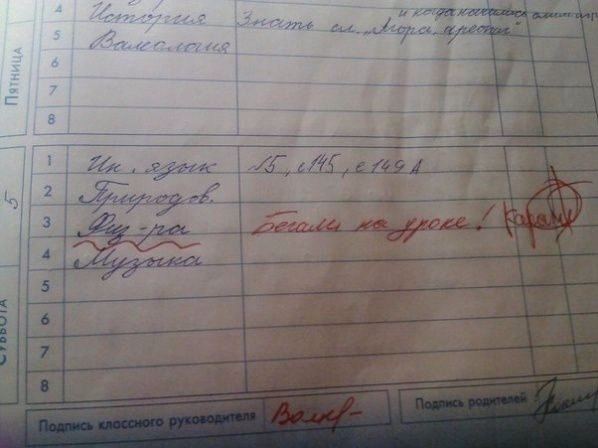 и когда начались
4 История Знать сл. „Мора,
5 Валеология
6
7
8
ПЯТНИЦА
1 Ин. язык №5, с145, с149А
2 Природов.
3 Физ-ра Бегали на уроке!
4 Музыка
5
6
7
8
5
СУББОТА
Подпись классного руководителя
Подпись родителей